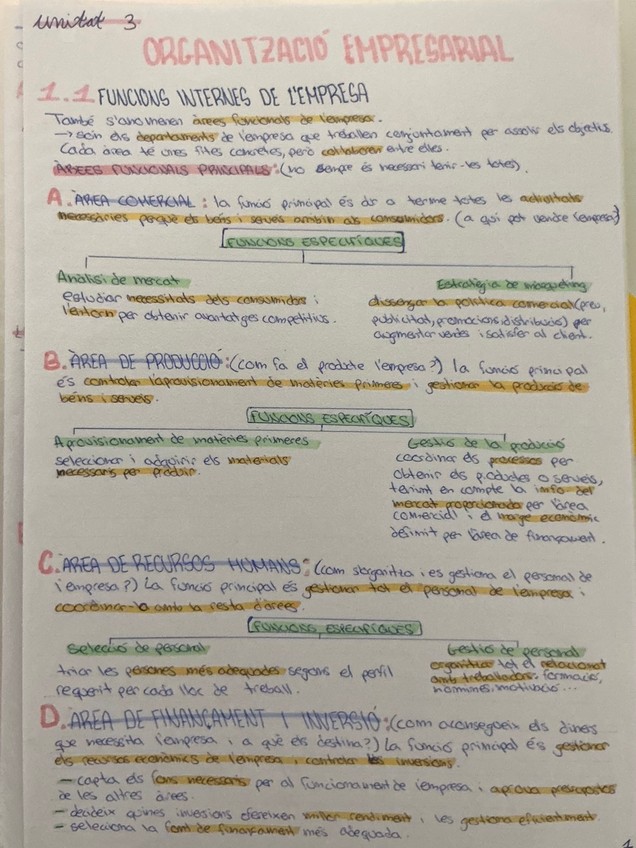 Unitat 3
ORGANITZACIÓ EMPRESARIAL
1.1 FUNCIONS INTERNES DE L'EMPRESA
També s'anomenen àrees funcionals de l'empresa.
→ són els departaments de l'empresa que treballen conjuntament per assolir els objectius.
Cada àrea té unes fites concretes, però col·laboren entre elles.
ÀREES FUNCIONALS PRINCIPALS: (no sempre és necessari tenir-les totes).
A. ÀREA COMERCIAL: la funció principal és dur a terme totes les activitats
necessàries perquè els béns i serveis arribin als consumidors. (a qui pot vendre l'empresa?)
FUNCIONS ESPECÍFIQUES
Anàlisi de mercat
estudiar necessitats dels consumidors i
l'entorn per obtenir avantatges competitius.
Estratègia de màrqueting
dissenyar la política comercial (preu,
publicitat, promocions, distribució) per
augmentar vendes i satisfer al client.
B. ÀREA DE PRODUCCIÓ: (com fa el producte l'empresa?) la funció principal
és controlar l'aprovisionament de matèries primeres i gestionar la producció de
béns i serveis.
FUNCIONS ESPECÍFIQUES
Aprovisionament de matèries primeres
seleccionar i adquirir els materials
necessaris per produir.
Gestió de la producció
coordinar els processos per
obtenir els productes o serveis,
tenint en compte la info del
mercat proporcionada per l'àrea
comercial i el marge econòmic
definit per l'àrea de finançament.
C. ÀREA DE RECURSOS HUMANS: (com s'organitza i es gestiona el personal de
l'empresa?) La funció principal és gestionar tot el personal de l'empresa i
coordinar-lo amb la resta d'àrees.
FUNCIONS ESPECÍFIQUES
Selecció de personal
triar les persones més adequades segons el perfil
requerit per cada lloc de treball.
Gestió de personal
organitzar tot el relacionat
amb treballadors: formació,
nòmines, motivació...
D. ÀREA DE FINANÇAMENT I INVERSIÓ: (com aconsegueix els diners
que necessita l'empresa i a què els destina?) La funció principal és gestionar
els recursos econòmics de l'empresa i controlar les inversions.
- capta els fons necessaris per al funcionament de l'empresa i aprova pressupostos
de les altres àrees.
- decideix quines inversions ofereixen millor rendiment i les gestiona eficientment.
- selecciona la font de finançament més adequada.
1